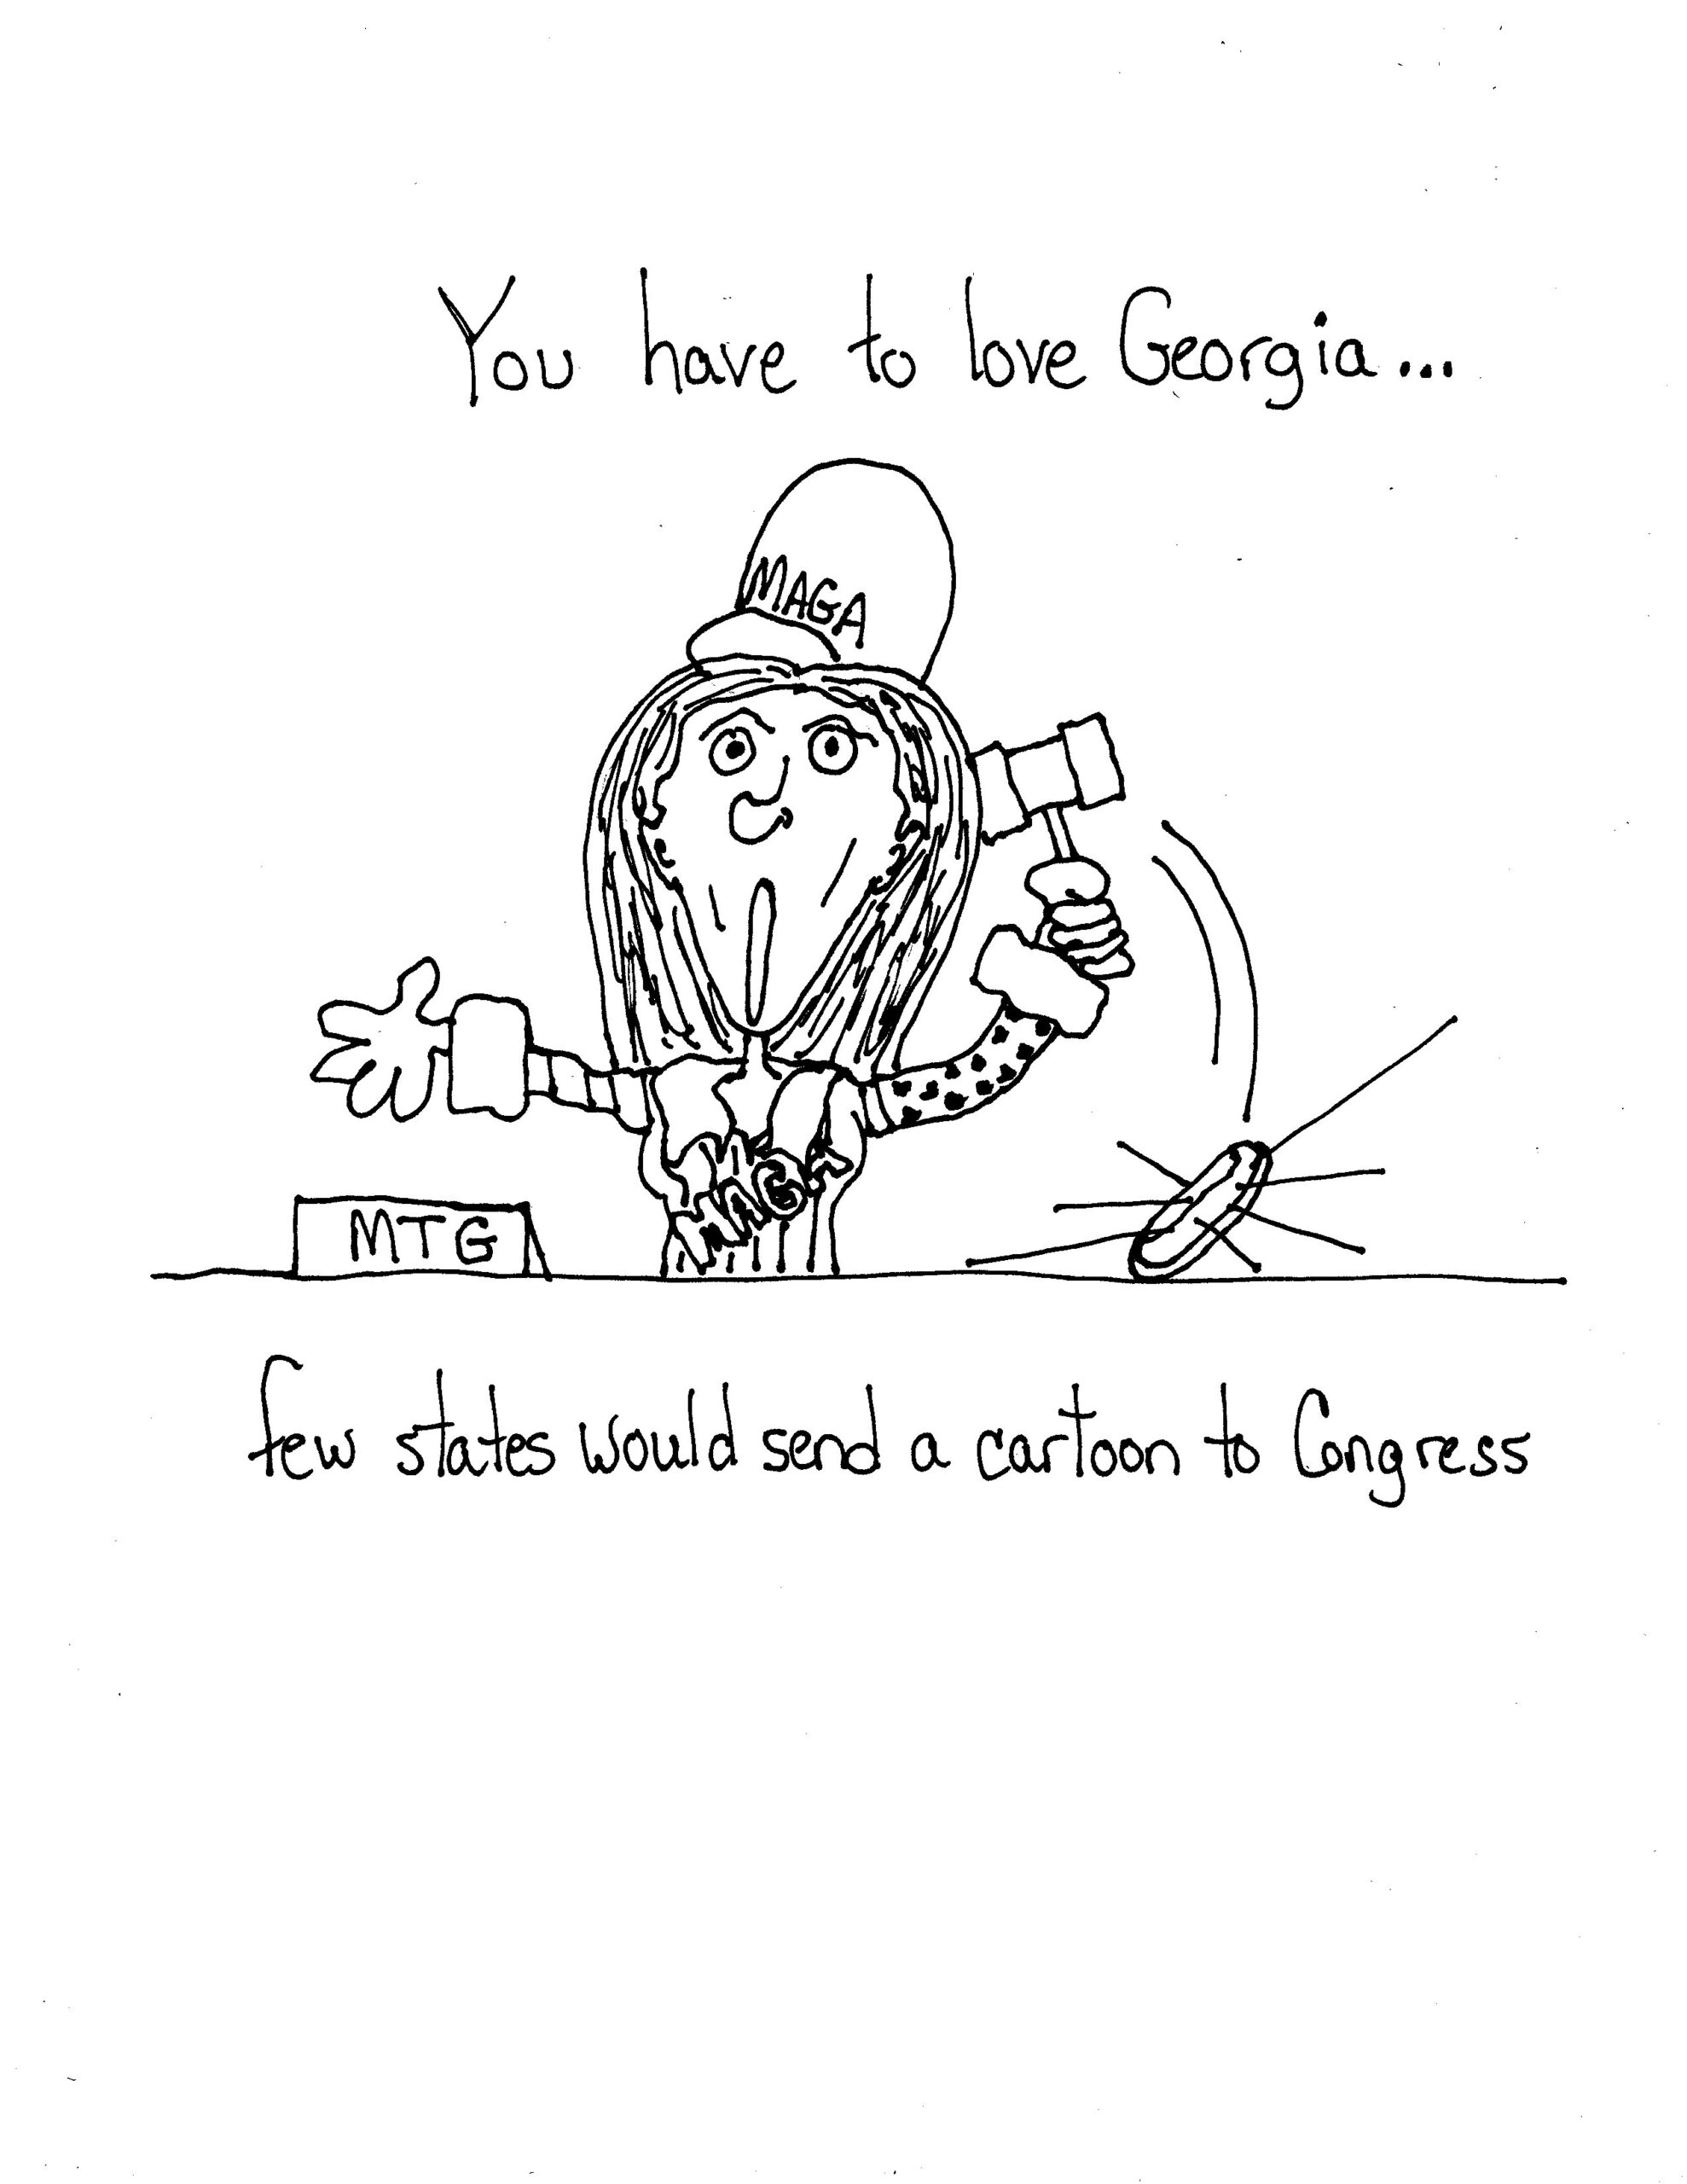 You have to love Georgia...
MAGA
MAGA
MTG
few states would send a cartoon to Congress